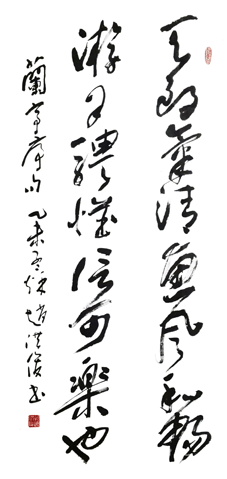 天朗氣清惠風和暢
游目騁懷信可樂也
蘭亭序句 乙未冬 趙洪俊書